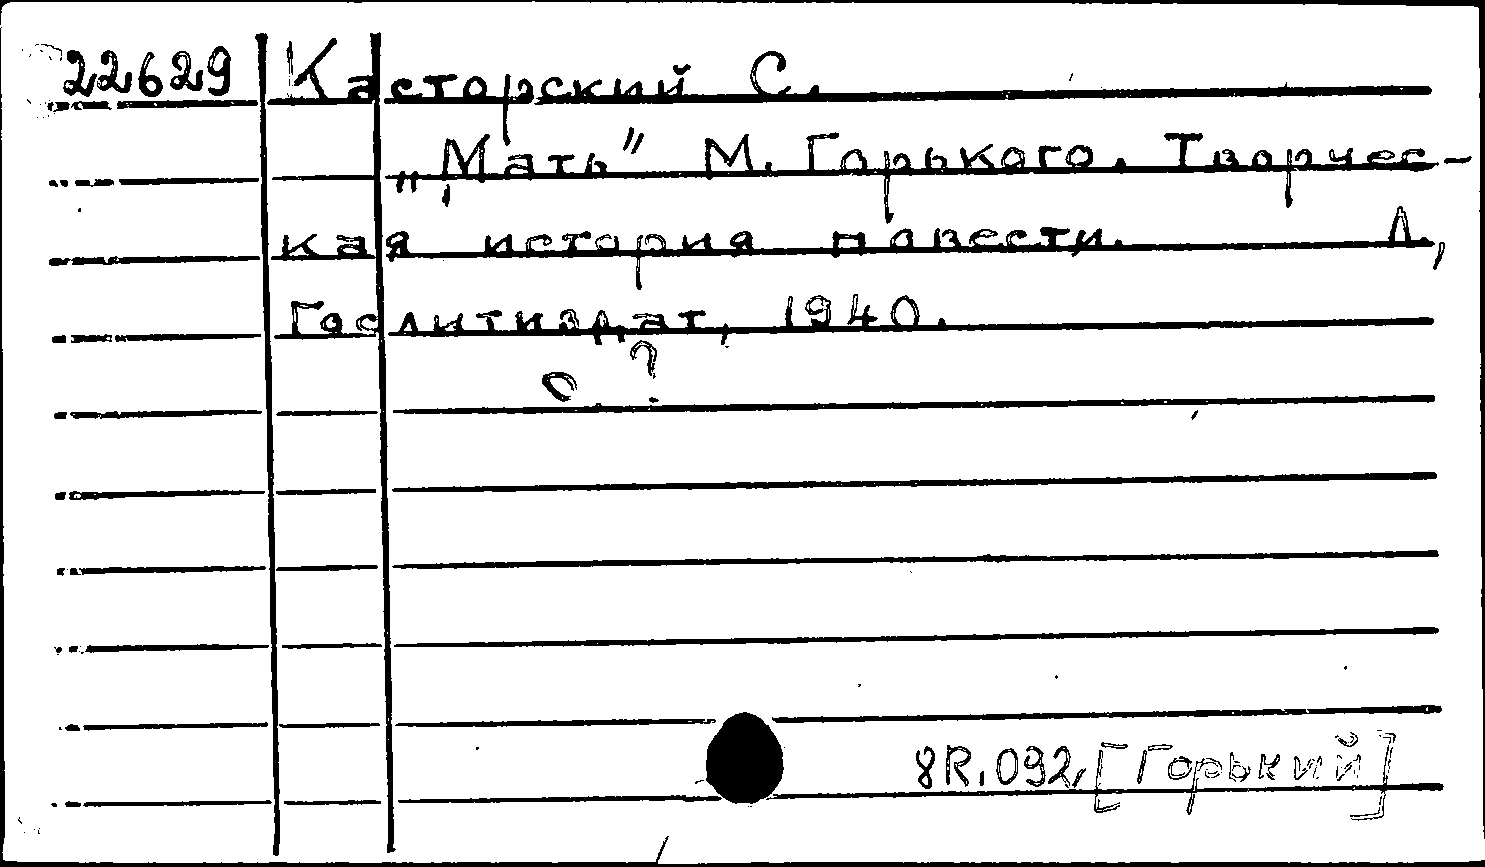 22629 Касторский С.
„Мать” М. Горького. Творчес-
кая история повести. Л.,
Гослитиздат, 1940.
?
8R.092,[Горький]